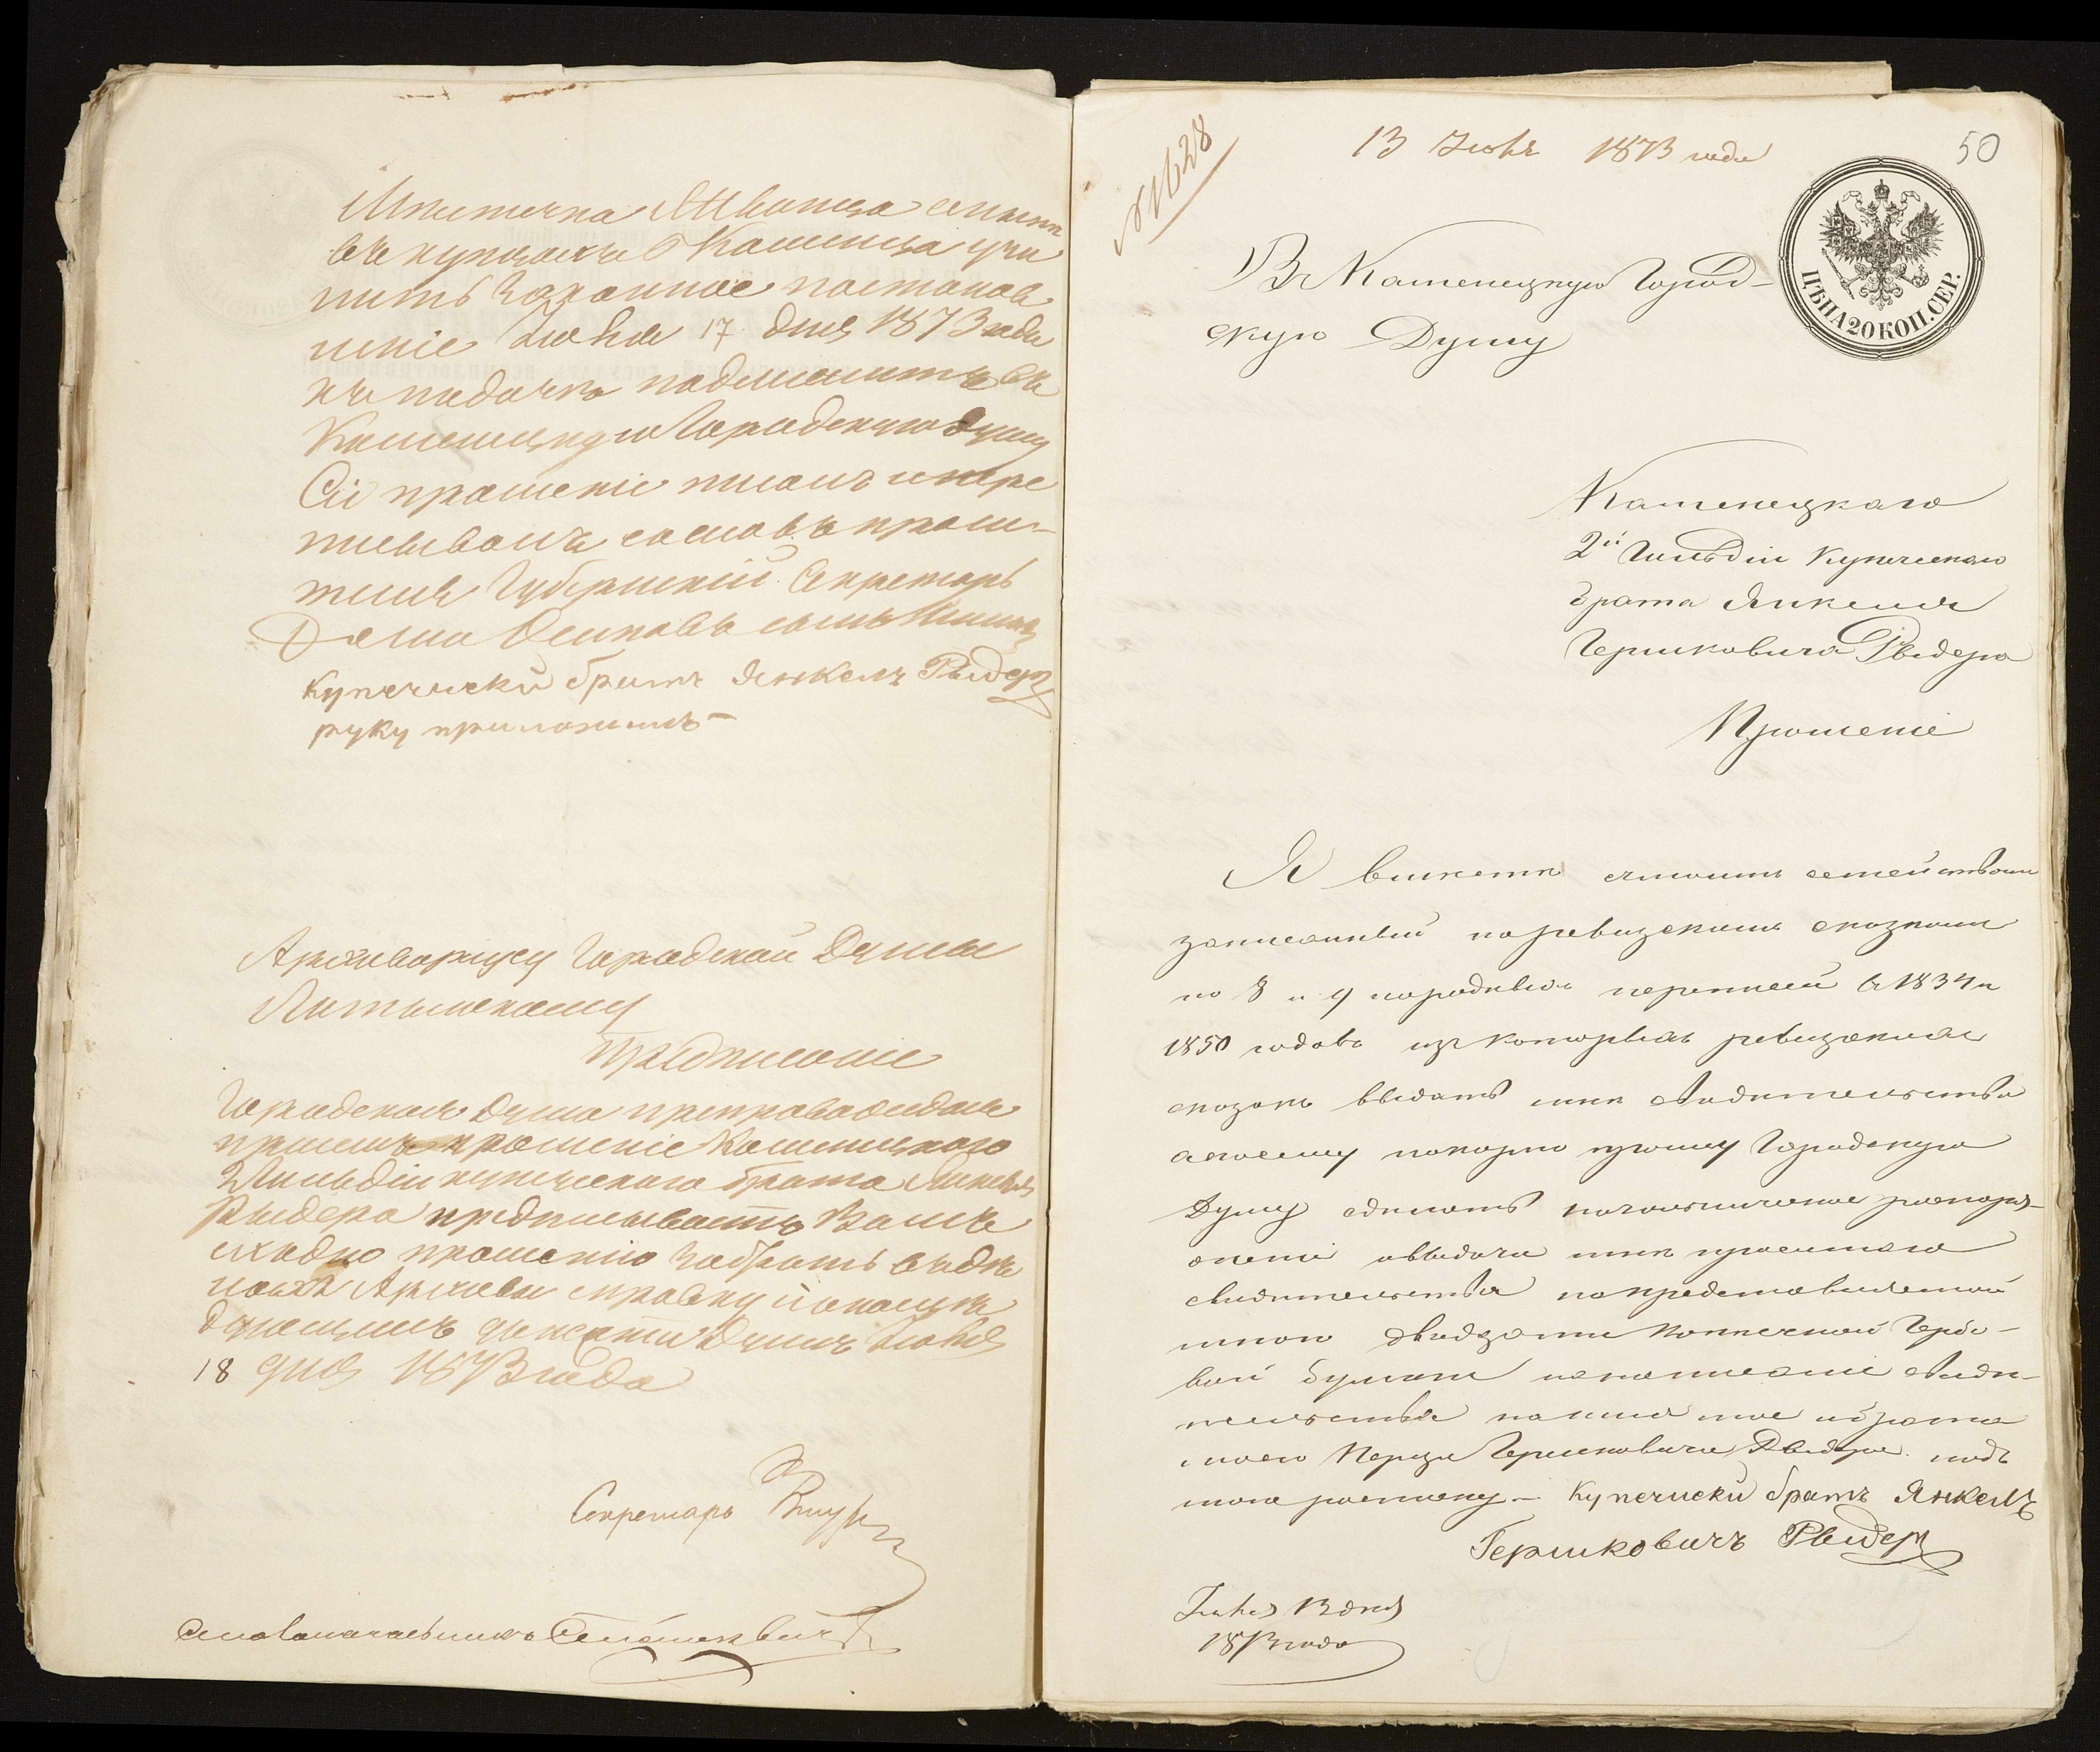 въ купцахъ Каменца учи
нить законное постанов
леніе Іюня 17 дня 1873 года
къ подачѣ подлежитъ въ
Каменецкую Городскую Думу
Сіе прошеніе писалъ и пере
писывалъ со словъ проси-
теля Губернскій Секретарь
Осиповъ сынъ
Купеческій братъ Янкель Рыдер
руку приложилъ
Архиваріусу Городской Думы
Предписаніе
Городская Дума препровождая
при семъ прошеніе Каменецкаго
2 Гильдіи купеческаго брата Янкеля
Рыдера предписываетъ Вамъ
сходно прошенію собрать въ
Архивѣ справку и
донести Думѣ Іюня
18 дня 1873 года
Секретарь
Столоначальникъ
№ 1628
13 Іюня 1873 года
50
ЦѢНА 20 КОП. СЕР.
Въ Каменецкую Город-
скую Думу
Каменецкаго
2й Гильдіи Купеческаго
брата Янкеля
Гершковича Рыдера
Прошеніе
Я вмѣстѣ съ моимъ семействомъ
записанный по ревизскимъ сказкамъ
по 8 и 9 народныхъ переписей въ 1834 и
1850 годовъ изъ которыхъ ревизскихъ
сказокъ выдать мнѣ свидѣтельство
а посему покорно прошу Городскую
Думу сдѣлать распоря-
женіе о выдачи мнѣ просимаго
свидѣтельства по представляемой
мною двадцати копѣечной Гербо-
вой бумаги на написаніе свидѣ-
тельства на имя мое и брата
моего Герцы Гершковича Рыдера подъ
мою росписку - Купечиски братъ Янкель
Гершковичъ Рыдер
Іюня 13 дня
1873 года